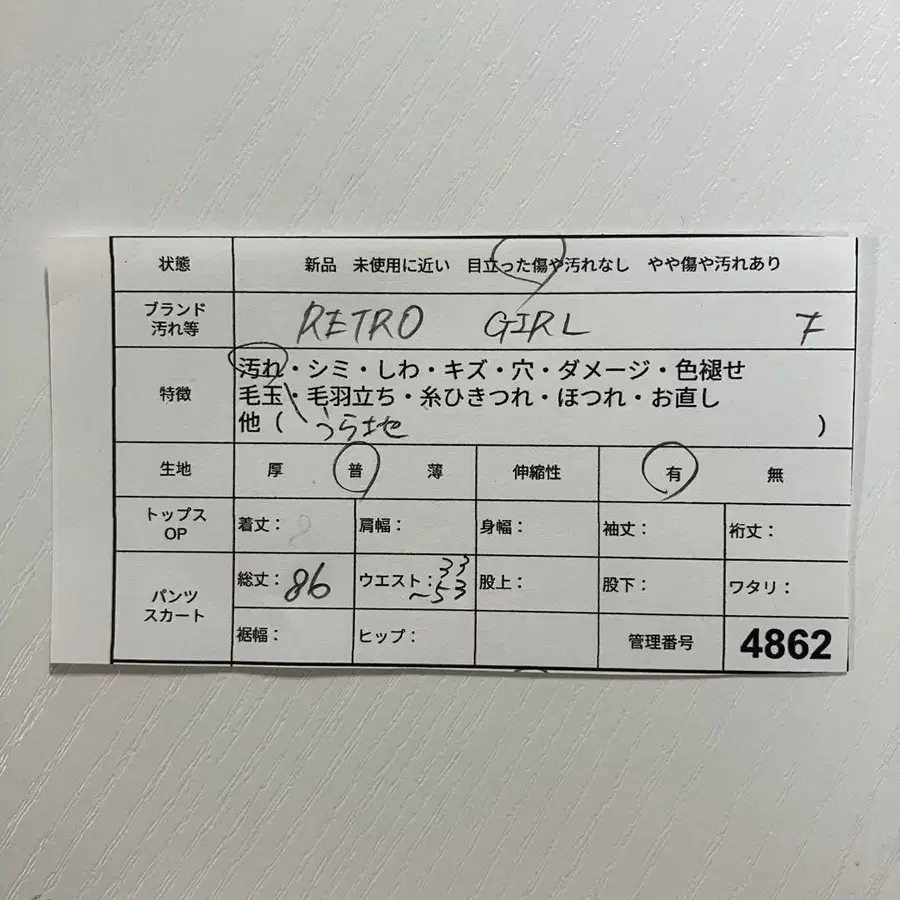 状態 新品 未使用に近い 目立った傷や汚れなし やや傷や汚れあり
ブランド
汚れ等 RETRO GIRL F
特徴 汚れ・シミ・しわ・キズ・穴・ダメージ・色褪せ
毛玉・毛羽立ち・糸ひきつれ・ほつれ・お直し
他（ うら地 ）
生地 厚 普 薄 伸縮性 有 無
トップス
OP 着丈： 肩幅： 身幅： 袖丈： 裄丈：
パンツ
スカート 総丈：86 ウエスト：33
〜53 股上： 股下： ワタリ：
裾幅： ヒップ： 管理番号 4862